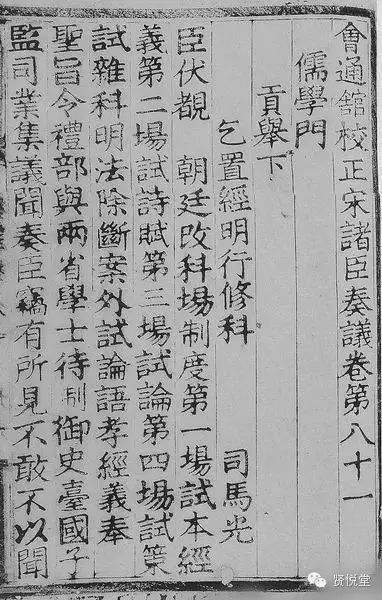 會通舘校正宋諸臣奏議卷第八十一
儒學門
貢舉下
乞置經明行修科 司馬光
臣伏覩 朝廷改科場制度第一場試本經
義第二場試詩賦第三場試論第四場試策
試雜科明法除斷案外試論語孝經義奉
聖旨令禮部與兩省學士待制御史臺國子
監司業集議聞奏臣竊有所見不敢不以聞
贤悦堂